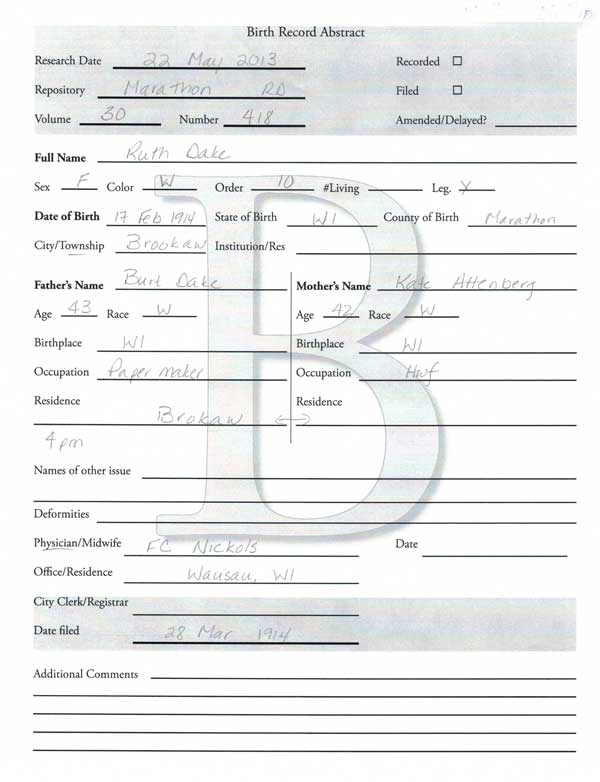 Birth Record Abstract
Research Date 22 May 2013 Recorded ☐
Repository Marathon RD Filed ☐
Volume 30 Number 418 Amended/Delayed?
Full Name Ruth Dake
Sex F Color W Order 10 #Living Leg. Y
Date of Birth 17 Feb 1914 State of Birth WI County of Birth Marathon
City/Township Brookaw Institution/Res
Father's Name Burt Dake Mother's Name Kate Attenberg
Age 43 Race W Age 42 Race W
Birthplace WI Birthplace WI
Occupation Paper maker Occupation Hwf
Residence Residence
Brokaw ↔
4 pm
Names of other issue
Deformities
Physician/Midwife FC Nickols Date
Office/Residence Wausau, WI
City Clerk/Registrar
Date filed 28 Mar 1914
Additional Comments
B